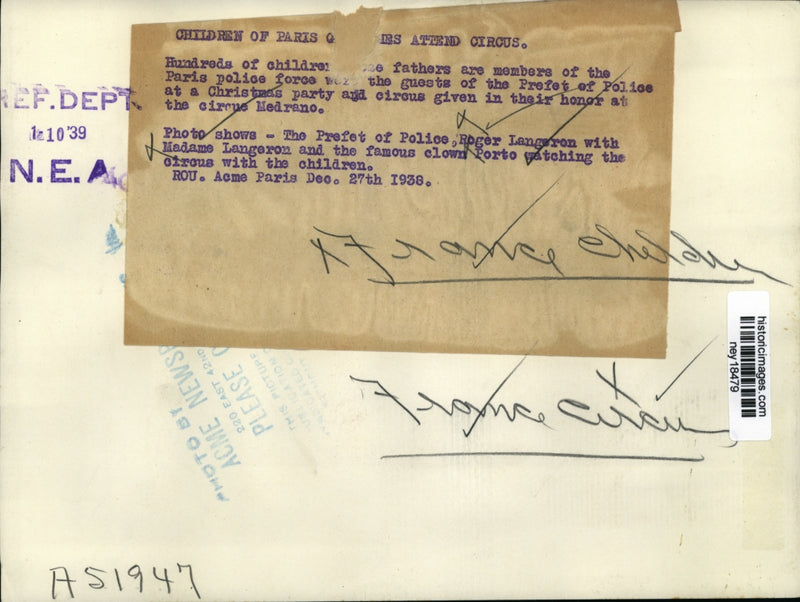 CHILDREN OF PARIS G MES ATTEND CIRCUS.
Hundreds of children se fathers are members of the
Paris police force were the guests of the Prefet of Police
at a Christmas party and circus given in their honor at
the circus Medrano.
Photo shows - The Prefet of Police, Roger Langeron with
Madame Langeron and the famous clown Porto watching the
circus with the children.
ROU. Acme Paris Dec. 27th 1938.
REF. DEPT.
10 '39
N.E.A.
France Children
France Circus
historicimages.com
ney18479
PHOTO BY
ACME NEWSP
220 EAST 42ND
PLEASE C
THIS PICTURE
A51947